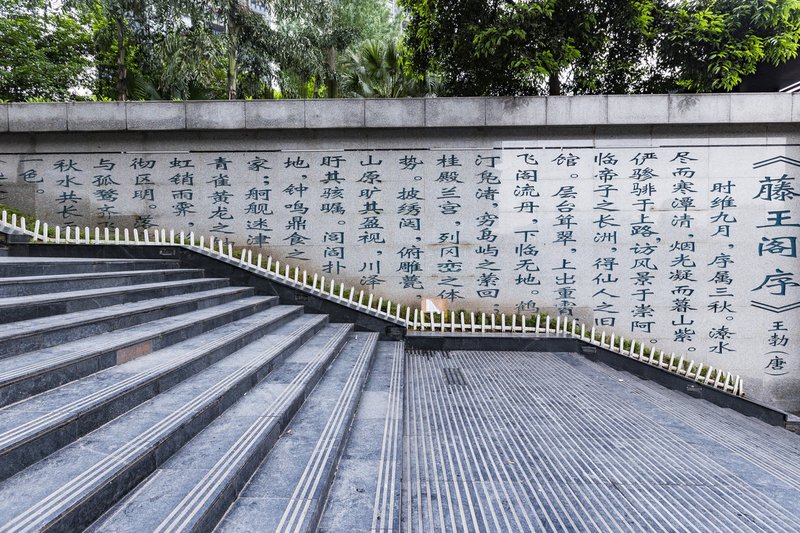 《滕王阁序》
王勃(唐)
时维九月，序属三秋。潦水
尽而寒潭清，烟光凝而暮山紫。
俨骖騑于上路，访风景于崇阿。
临帝子之长洲，得仙人之旧
馆。层台耸翠，上出重霄
飞阁流丹，下临无地。鹤
汀凫渚，穷岛屿之萦回
桂殿兰宫，列冈峦之体
势。披绣闼，俯雕甍
山原旷其盈视，川泽
盱其骇瞩。闾阎扑
地，钟鸣鼎食之
家；舸舰迷津
青雀黄龙之
虹销雨霁
彻区明。落
与孤鹜齐
秋水共长
一色。